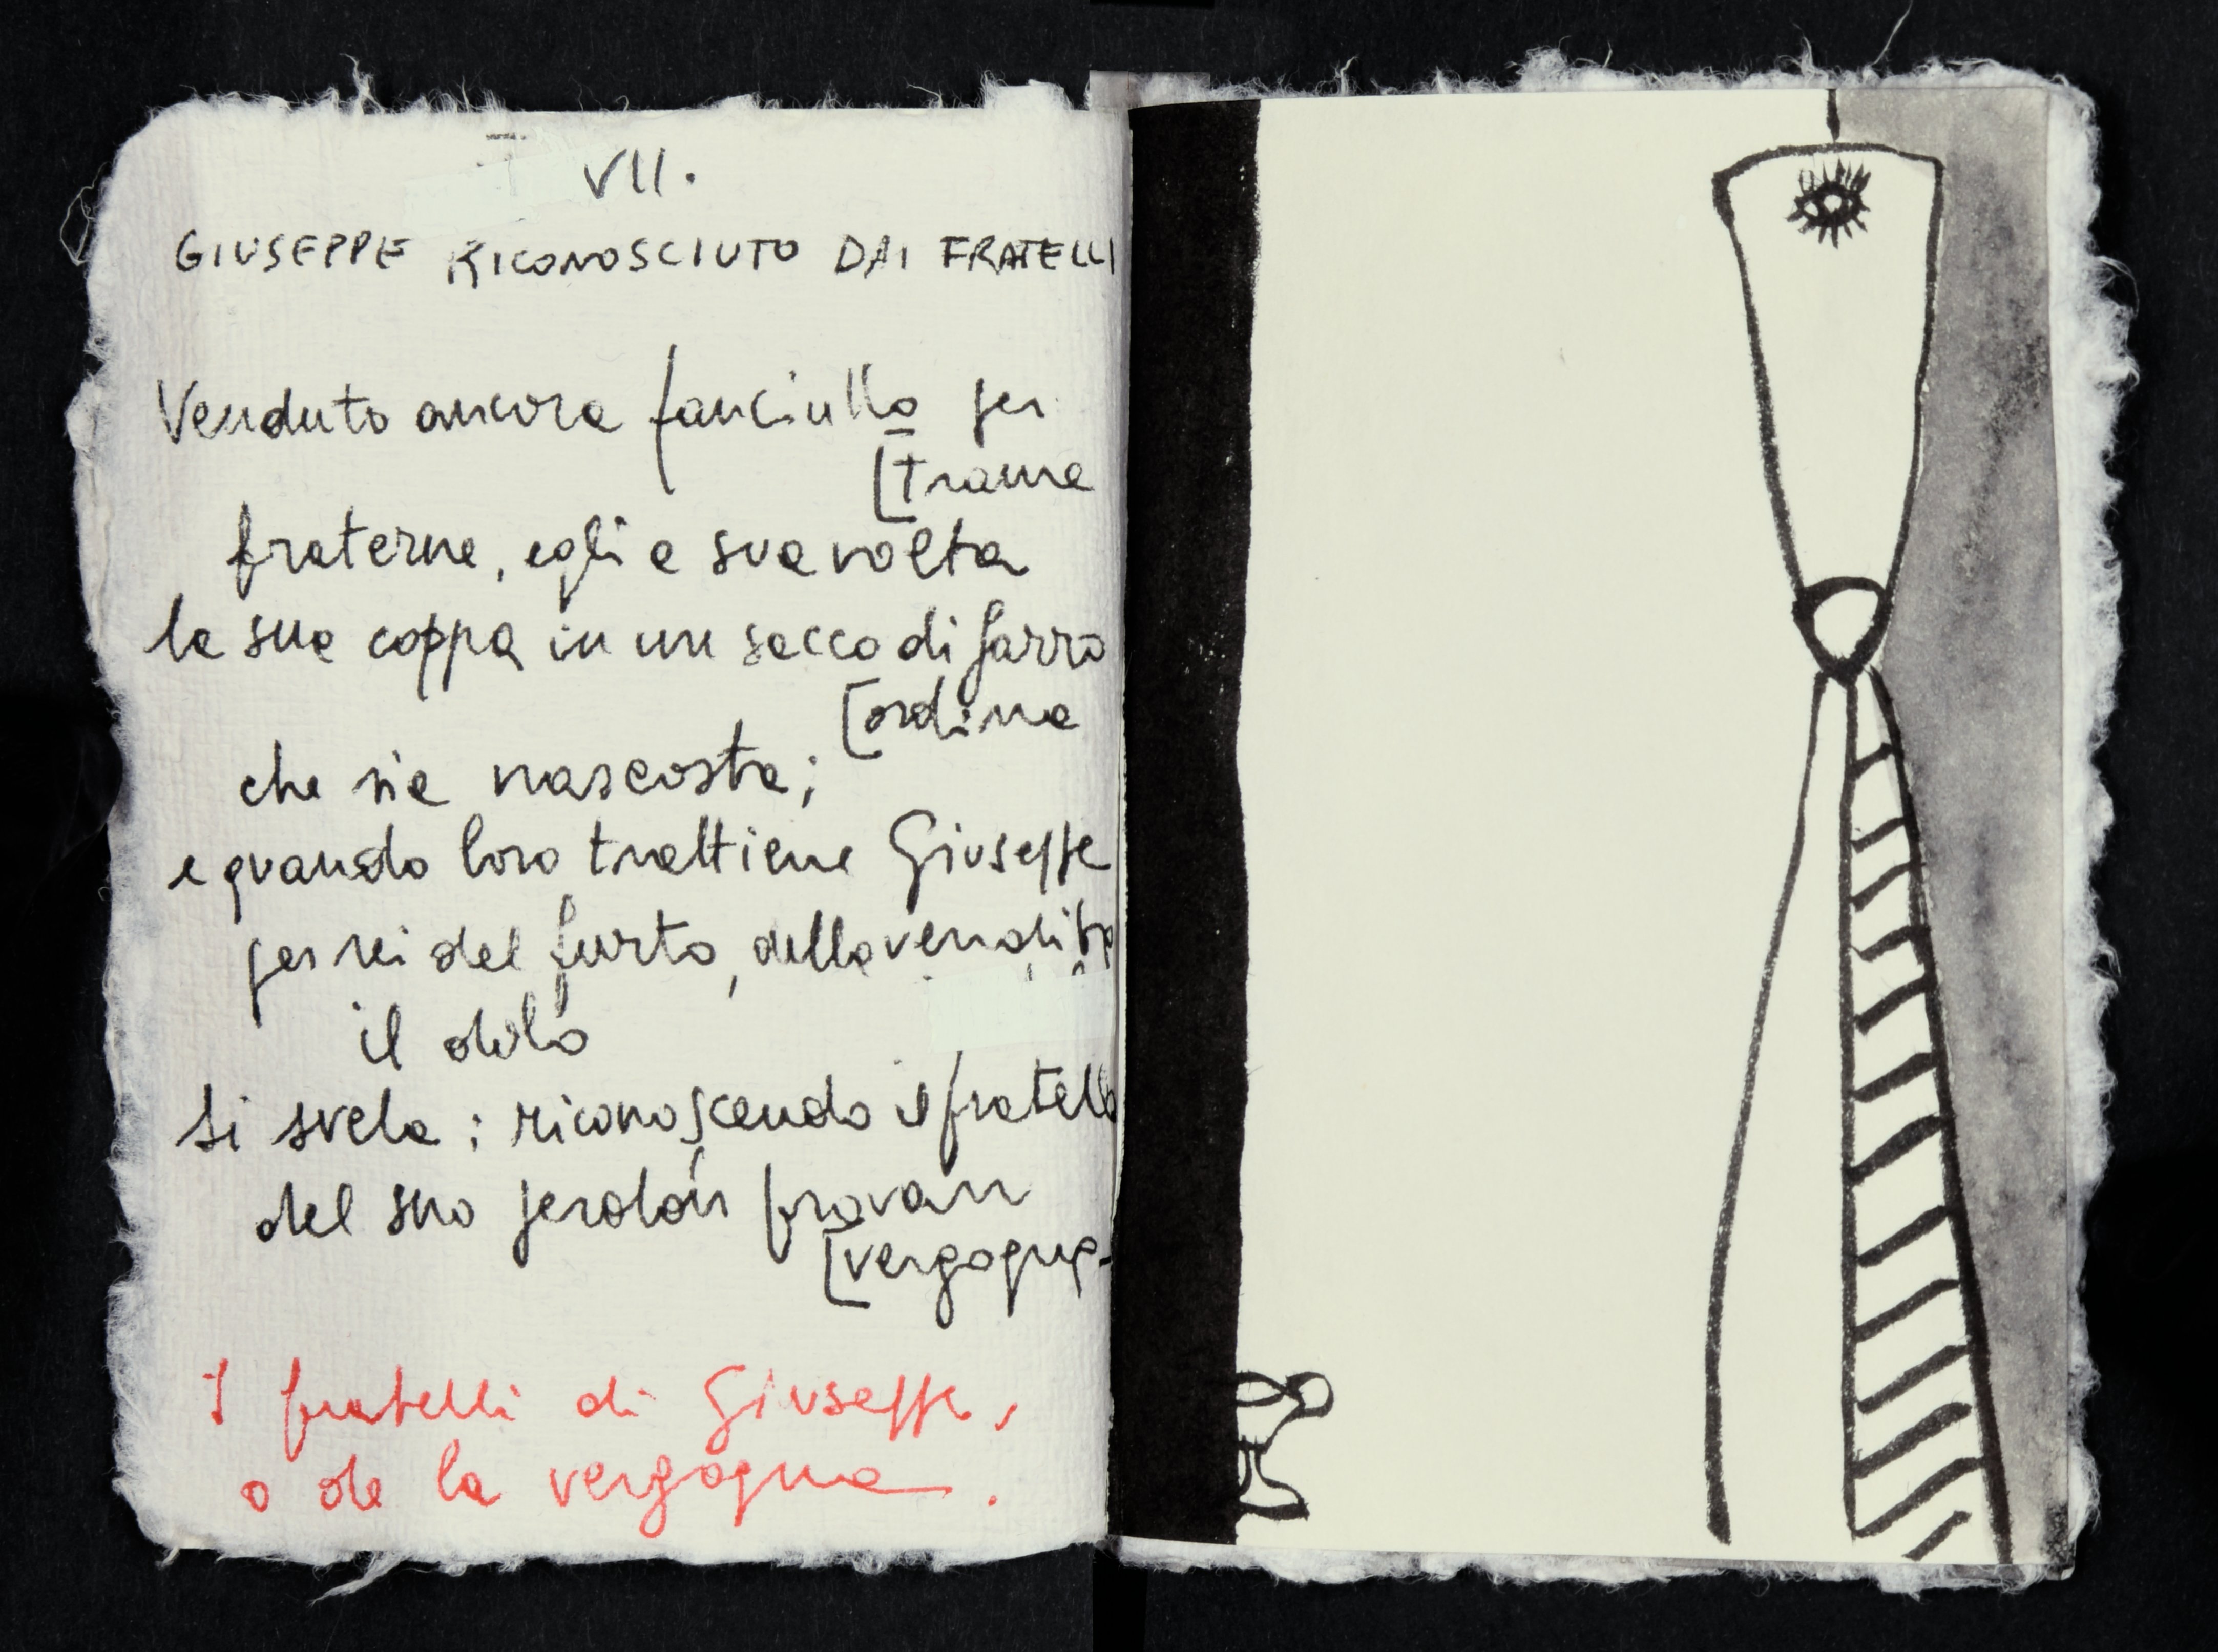 VII.
GIUSEPPE RICONOSCIUTO DAI FRATELLI
Venduto ancora fanciullo per
[trame
fraterne, egli a sua volta
la sua coppa in un sacco di farro
[ordina
che sia nascosta;
e quando loro trattiene Giuseppe
per rei del furto, della vendita
il dolo
si svela; riconoscendo il fratello
del suo perdon provan
[vergogna.
I fratelli di Giuseppe,
o de la vergogna.